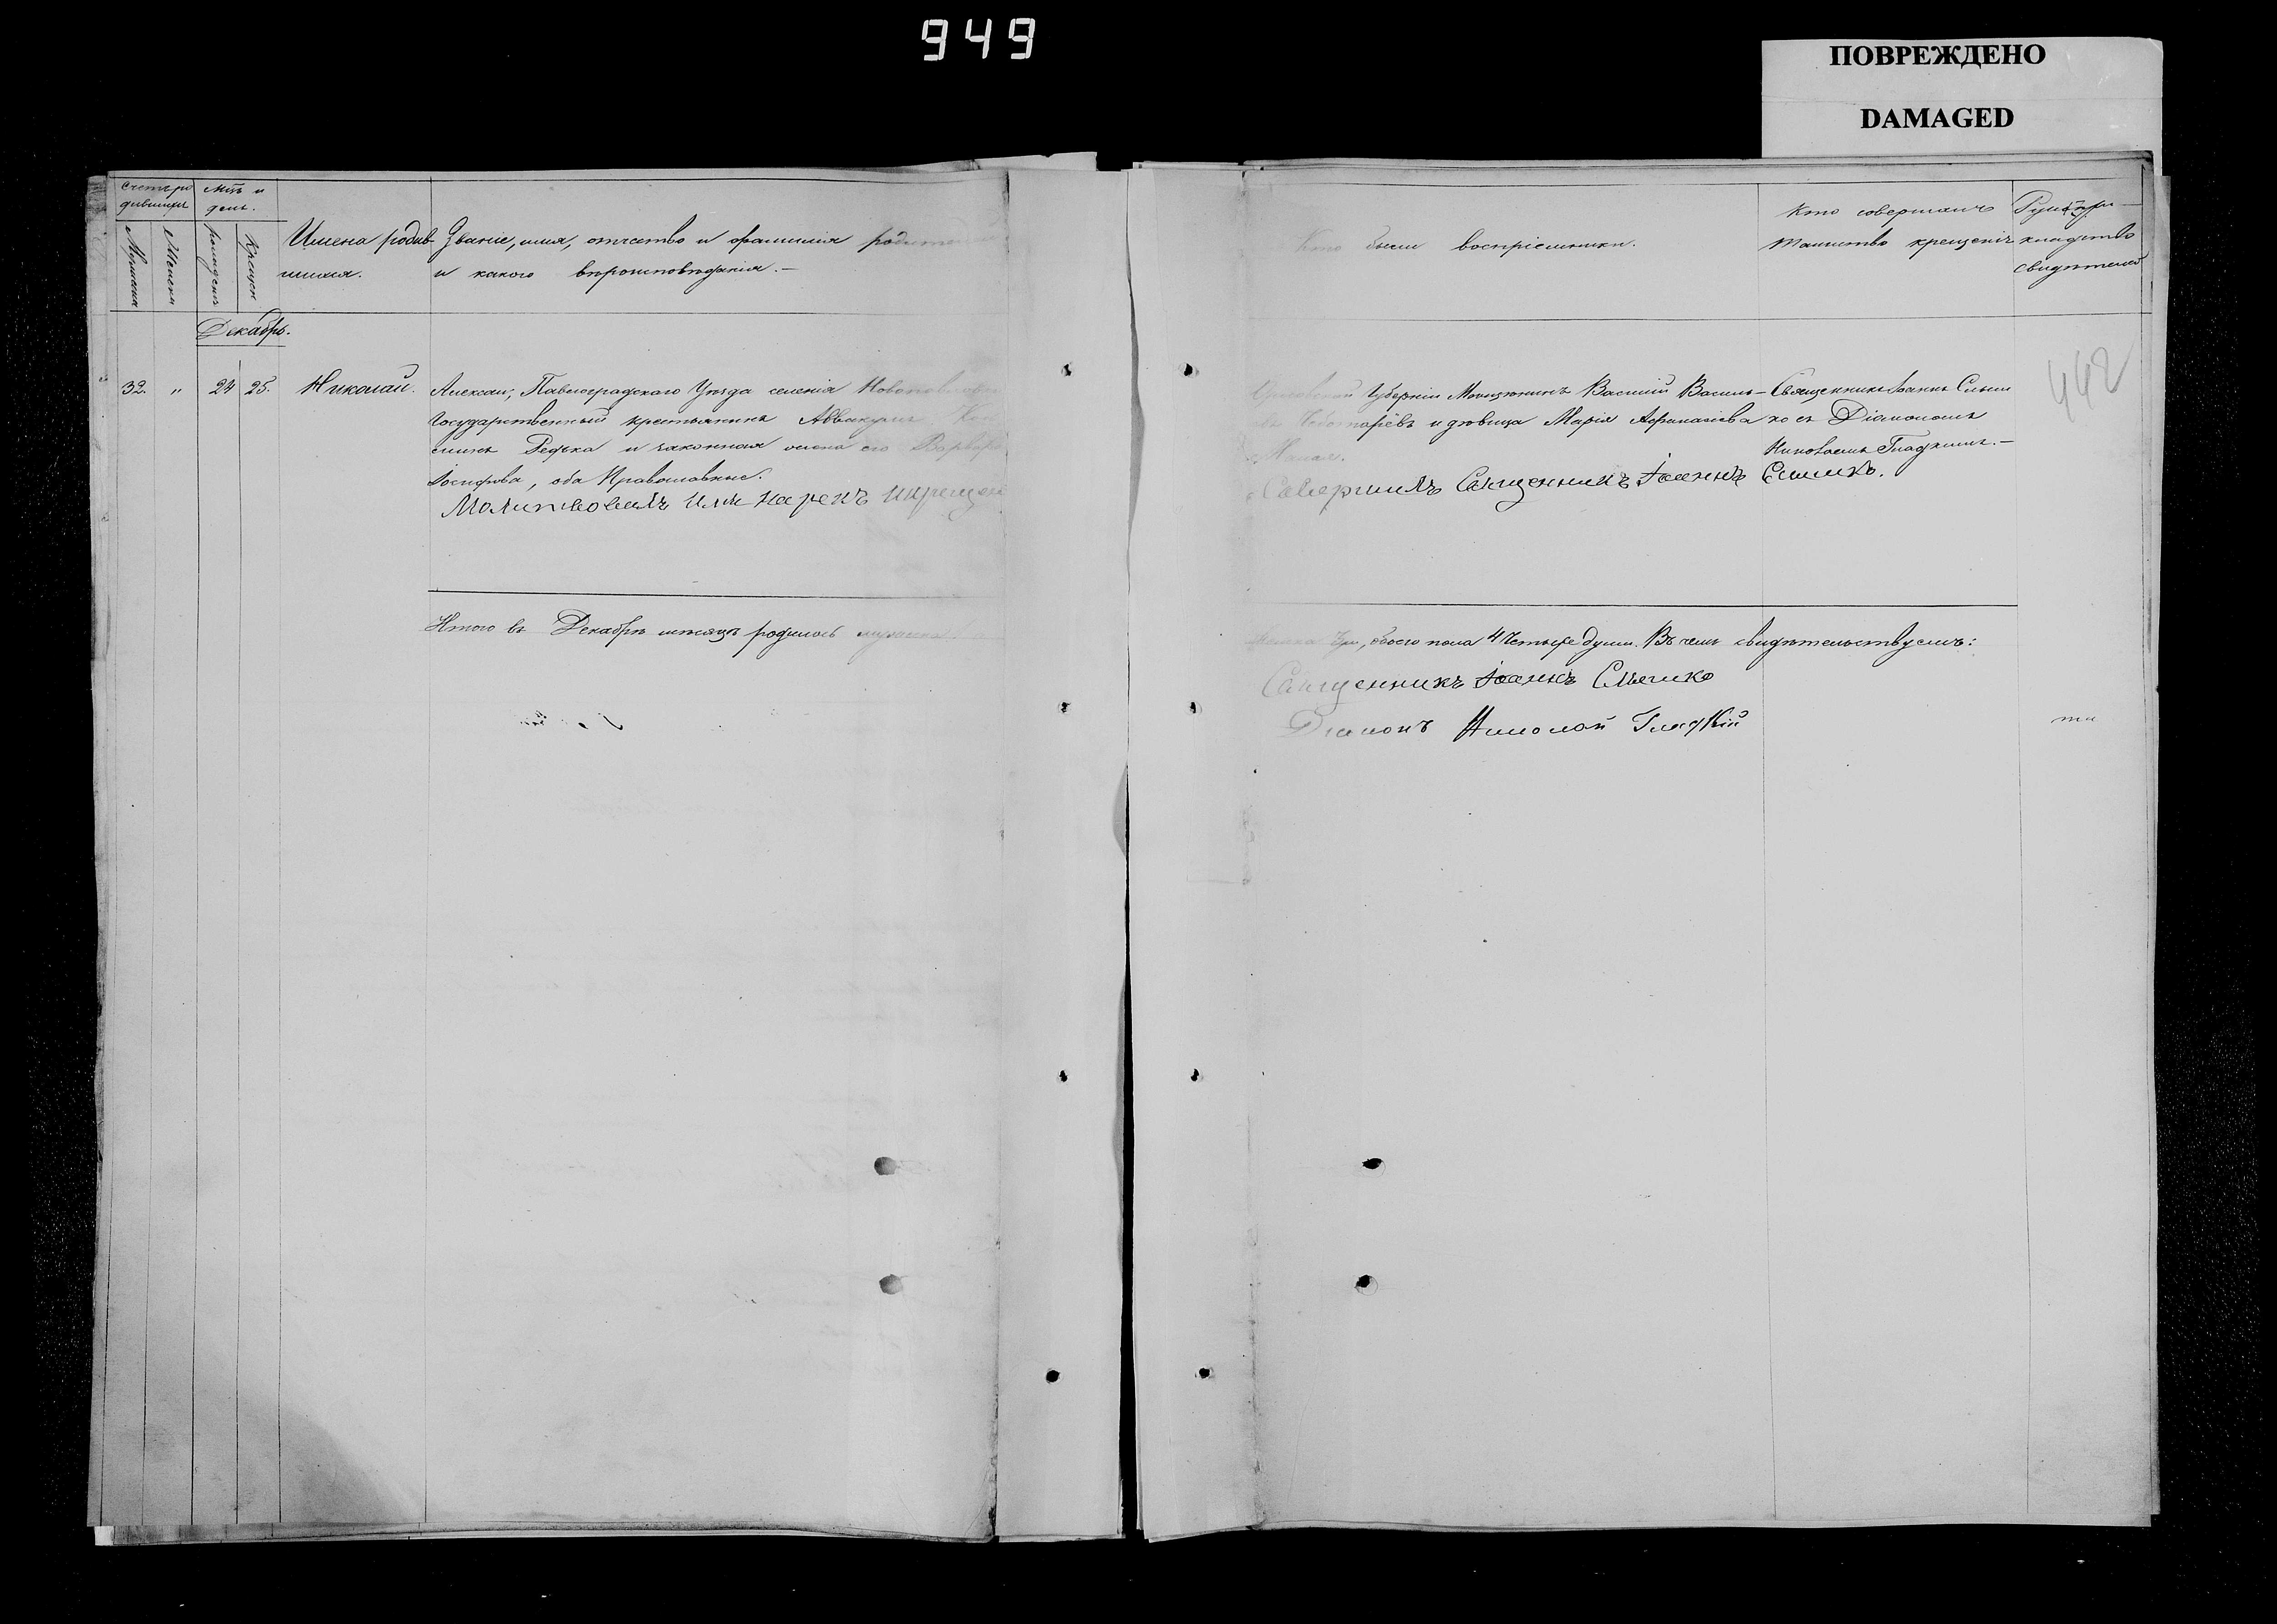 949
ПОВРЕЖДЕНО
DAMAGED
Счетъ родившихся
Мужеска
Женска
Мѣс. и день.
рожденія
Крещен
Имена родившихся.
Званіе, имя, отчество и фамилія родителей
и какого вѣроисповѣданія.—
Кто были воспріемники.
Кто совершалъ
таинство крещенія
Рукопри-
кладство
свидѣтелей
Декабрь.
32. " 24 25. Николай.
Павлоградскаго Уѣзда селенія
Государственный крестьянинъ Аввакумъ
Редька и законная жена его Варвара
Іосифова, оба Православные.
Молитвовалъ имя нарекъ и крещен
Губерніи Мѣщанинъ Василій Василь-
Чеботарёвъ и дѣвица Марія Афанасіева
Священникъ Іоаннъ Сльш
ко съ Діакономъ
Николаемъ Гладкимъ.—
Совершилъ Священникъ Іоаннъ
442
Итого въ Декабрѣ мѣсяцѣ родилось мужеска
женска три, обоего пола 4 Четыре души. Въ чемъ свидѣтельствуемъ:
Священникъ Іоаннъ
Діаконъ Николай Гладкій